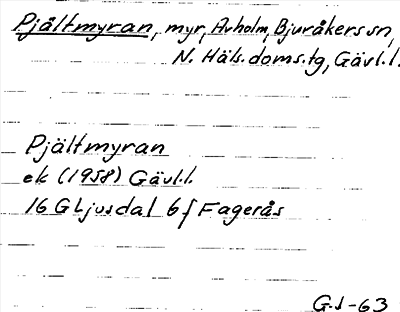 Pjåltmyran, myr, Avholm, Bjuråkers sn,
N. Häls. doms.tg, Gävl.l.
Pjältmyran
ek (1958) Gävl.l.
16 G Ljusdal 6 f Fagerås
G.J-63